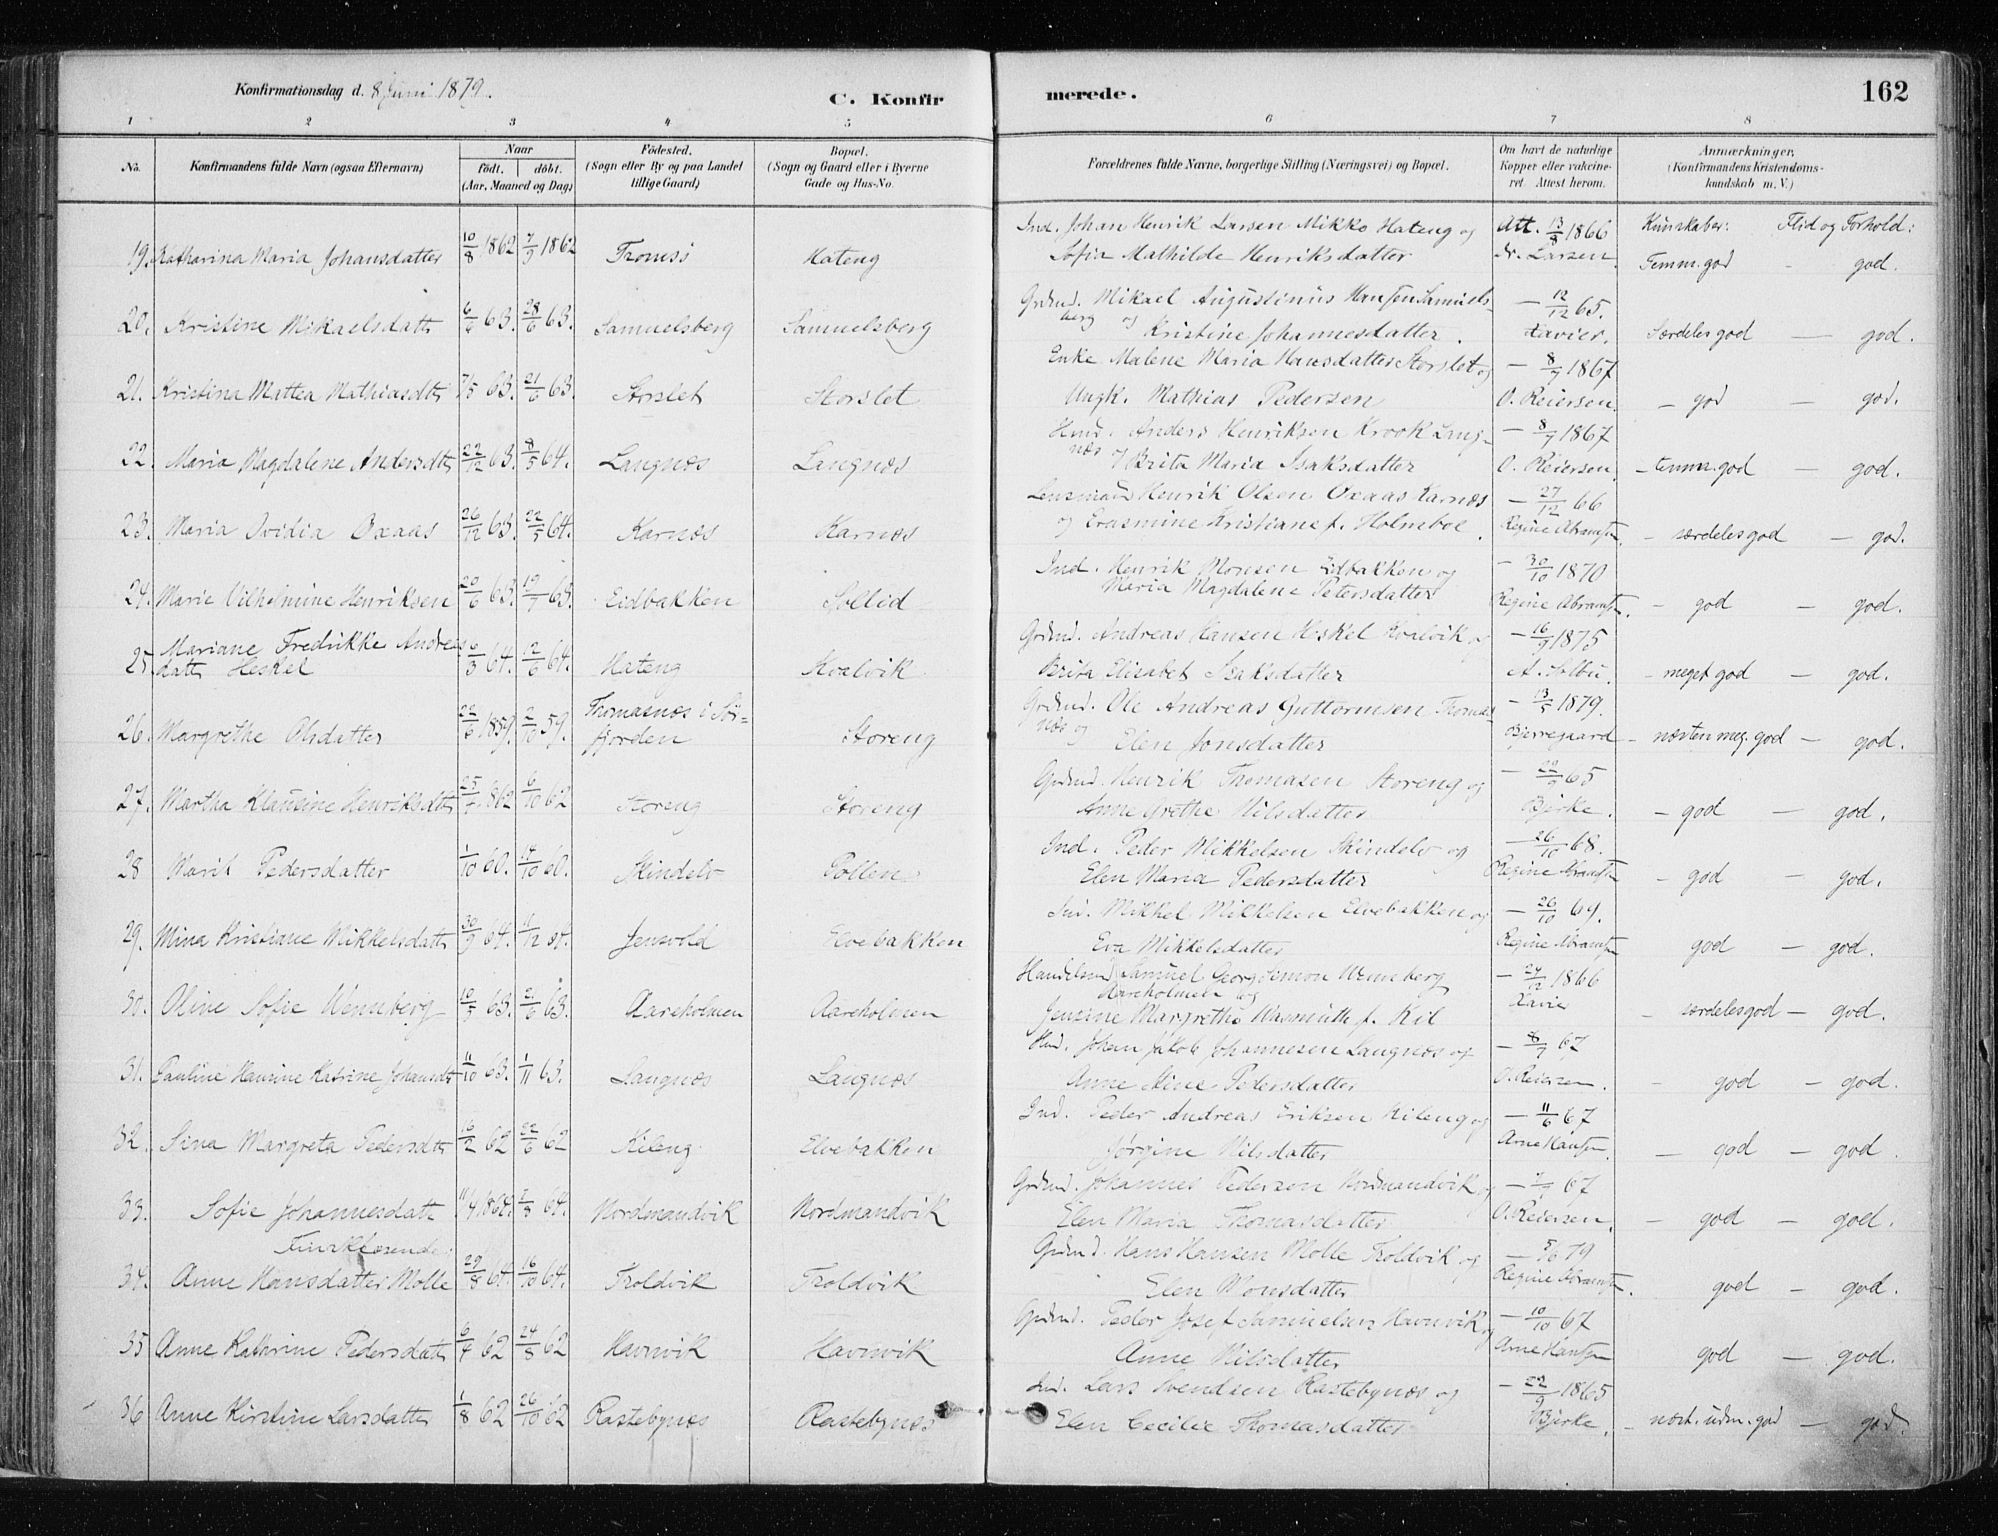 Konfirmationsdag d. 8 Juni 1879.
C. Konfirmerede.
162
1 2 3 4 5 6 7 8
No.
Konfirmandens fulde Navn (ogsaa Efternavn)
Naar
født. døbt.
(Aar, Maaned og Dag)
Fødested.
(Sogn eller By og paa Landet
tillige Gaard)
Bopæl.
(Sogn og Gaard eller i Byerne
Gade og Hus-No.
Forældrenes fulde Navne, borgerlige Stilling (Næringsvei) og Bopæl.
Om havt de naturlige
Kopper eller vakcine-
ret. Attest herom.
Anmærkninger,
(Konfirmandens Kristendoms-
kundskab m. V.)
Kundskaber: Flid og Forhold:
19. Katharina Maria Johansdatter 10/8 1862 7/9 1862 Tromsö Hateng Ind. Johan Henrik Larsen Mikko Hateng og Att. 13/8 1866
Sofia Mathilde Henriksdatter Dr. Larsen. Temm. god - god.
20. Kristine Mikaelsdattr 6/6 63. 28/6 63. Samuelsberg Samuelsberg Grdmd. Mikael Augustinus Hansen Samuels- — 12/12 65.
berg og Kristine Johannesdatter. Xavier. Særdeles god — god.
21. Kristina Mattea Mathiasdtr 7/5 63. 21/6 63. Storslet Storslet Enke Malene Maria Hansdatter Storslet og — 8/7 1867
Ungk. Mathias Pedersen O. Reiersen. — god — god.
22. Maria Magdalene Andersdtr 22/12 63. 8/5 64. Langnæs Langnæs Hmd. Anders Henriksen Krook Lang- — 8/7 1867
næs og Brita Maria Isaksdatter O. Reiersen. — temm. god — god.
23. Maria Ovidia Oxaas 26/12 63. 22/5 64. Karnæs Karnæs Lensmand Henrik Olsen Oxaas Karnæs — 27/12 66
og Erasmine Kristiane f. Holmboe. Regine Abramsen — særdeles god — god.
24. Marie Vilhelmine Henriksen 20/6 63. 19/7 63. Eidbakken Sollid Ind. Henrik Monsen Eidbakken og — 30/10 1870
Maria Magdalene Petersdatter Regine Abramsen. — god — god.
25 Mariane Fredrikke Andreas
datt Heskel 6/3 64. 12/6 64. Hateng Kvalvik Grdmd. Andreas Hansen Heskel Kvalvik og — 16/9 1875
Brita Elisabet Isaksdatter A. Solbu. — meget god — god.
26. Margrethe Olsdatter 22/6 1859. 2/10 59. Thomasnæs i Sör-
fjorden Storeng Grdmd. Ole Andreas Guttormsen Thomas- — 13/5 1879.
næs og Elen Jonsdatter Bjerregaard — næsten meg. god — god.
27. Martha Klausine Henriksdtr 1862 6/10 62 Storeng Storeng Grdmd. Henrik Thomasen Storeng og — 22/9 65
Anne Grethe Nilsdatter Bjerke. — god — god.
28 Marit Pedersdatter 1/10 60. 14/10 60. Skindelv Pollen Ind. Peder Mikkelsen Skindelv og — 26/10 68.
Elen Maria Pedersdatter Regine Abramsen — god — god.
29. Mina Kristiane Mikkelsdatt 30/9 64. 11/12 64. Jensvold Elvebakken Ind. Mikkel Mikkelsen Elvebakken og — 26/10 69.
Eva Mikkelsdatter Regine Abramsen god — god.
30. Oline Sofie Wenneberg 10/5 63. 21/6 63. Aareholmen Aareholmen Handelsmd Samuel Georg Simon Wenneberg — 27/12 1866
Aareholmen og Xavie
Jensine Margrethe Wasmuth f. Kil — særdeles god — god.
31. Pauline Hansine Katrine Johansdt 11/10 63. 1/11 63. Langnæs Langnæs Hmd. Johan Jakob Johannesen Langnæs og — 8/7 67
Anne Stine Pedersdatter O. Reiersen. — god — god.
32. Sina Margreta Pedersdtr 16/2 62 22/6 62 Kileng Elvebakken Ind. Peder Andreas Eriksen Kileng og — 11/6 67
Jörgine Nilsdatter Arne Hansen. — god — god.
33. Sofie Johannesdatt 11/4 1864. 64. Nordmandvik Nordmandvik Grdmd. Johannes Pedersen Nordmandvik og — 67
Elen Maria Thomasdatter O. Reiersen. — god — god.
Finsklæsende:
34. Anne Hansdatter Molle 29/8 64. 16/10 64. Troldvik Troldvik Grdmd. Hans Hansen Molle Troldvik og — 5/6 79
Elen Monsdatter Regine Abramsen. god — god.
35 Anne Kathrine Pedersdatt 62 24/8 62 Havnvik Havnvik Grdmd. Peder Josef Samuelsen Havnvik og — 10/10 67
Anne Nilsdatter Arne Hansen god — god.
36 Anne Kirstine Larsdatter 1/8 62 26/10 62 Rastebynæs Rastebynæs Ind. Lars Svendsen Rastebynæs og — 22/9 1865
Elen Cecilie Thomasdatter Bjerke. — næst. udm. god — god.